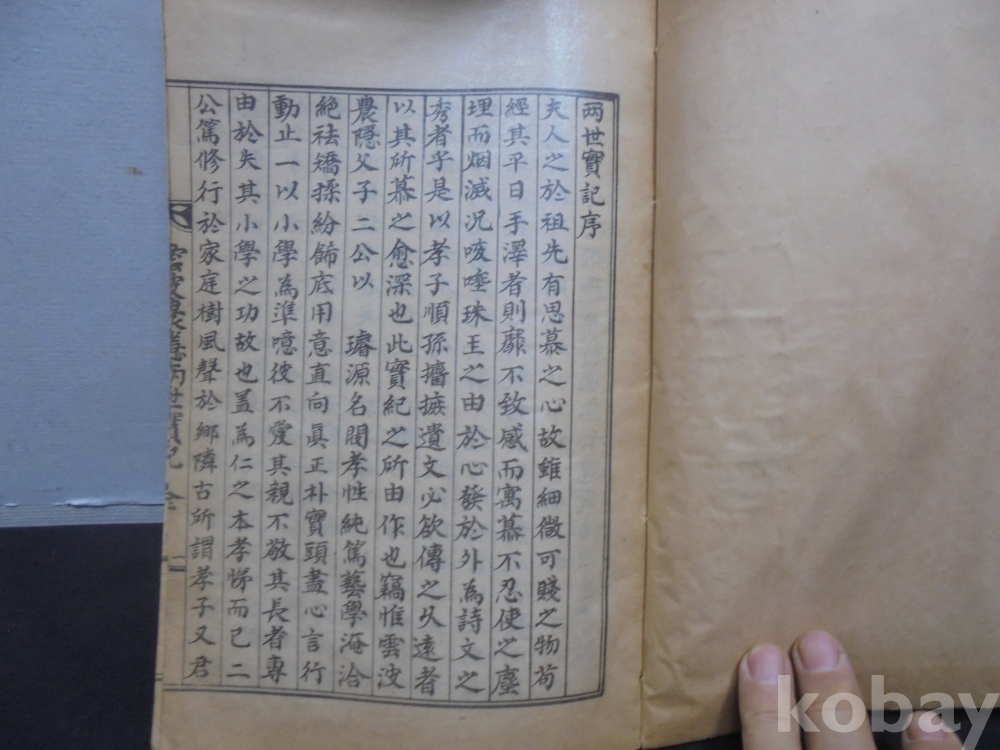 两世實記序
夫人之於祖先有思慕之心故雖細微可賤之物苟
經其平日手澤者則靡不致感而寓慕不忍使之塵
埋而烟滅況咳唾珠玉之由於心發於外為詩文之
秀者乎是以孝子順孫搢摭遺文必欲傳之久遠者
以其所慕之愈深也此實紀之所由作也竊惟雲波
農隱父子二公以 璿源名閥孝性純篤藝學淹洽
絶祛矯揉紛餙底用意直向眞正朴實頭盡心言行
動止一以小學為準噫彼不愛其親不敬其長者專
由於失其小學之功故也盖為仁之本孝悌而已二
公篤修行於家庭樹風聲於鄉隣古所謂孝子又君
農隱兩世實記 全 一
kobay